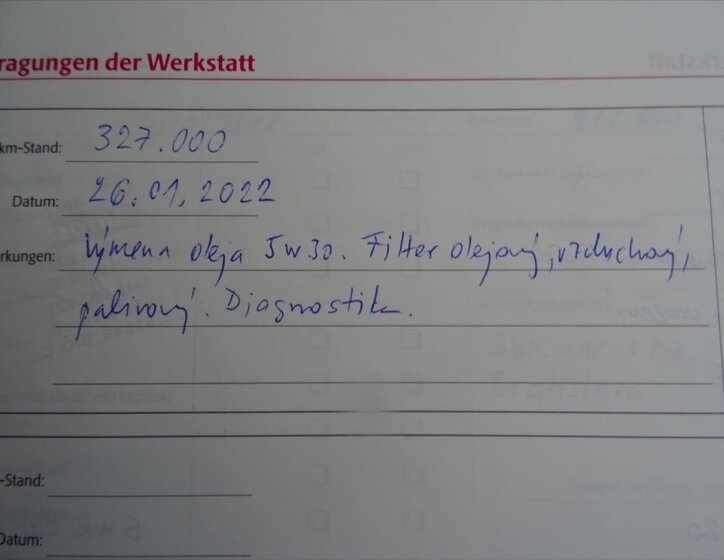 ragungen der Werkstatt
km-Stand: 327.000
Datum: 26.01.2022
rkungen: Výmena oleja 5w30. Filter olejový, vzduchový,
palivový. Diagnostika.
-Stand:
Datum: